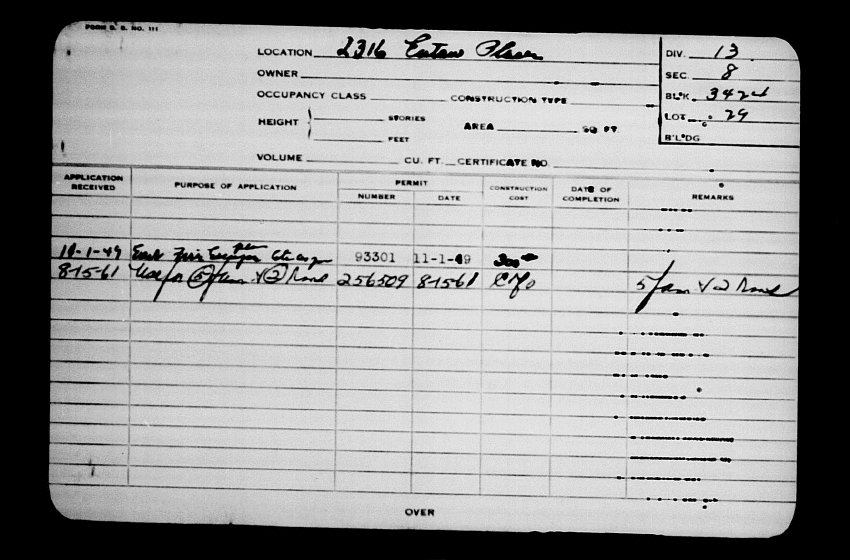 FORM B. B. NO. 111
LOCATION 2316 Eutaw Place
DIV. 13
OWNER
SEC. 8
OCCUPANCY CLASS CONSTRUCTION TYPE
BL'K. 3424
LOT 29
HEIGHT STORIES AREA SQ FT.
FEET
B'L'DG
VOLUME CU. FT. CERTIFICATE NO.
APPLICATION RECEIVED PURPOSE OF APPLICATION PERMIT NUMBER DATE CONSTRUCTION COST DATE OF COMPLETION REMARKS
11-1-49 Fire 93301 11-1-49 300
8-15-61 Use for 5 fam & 2 256509 8-15-61 5 fam & 2
OVER